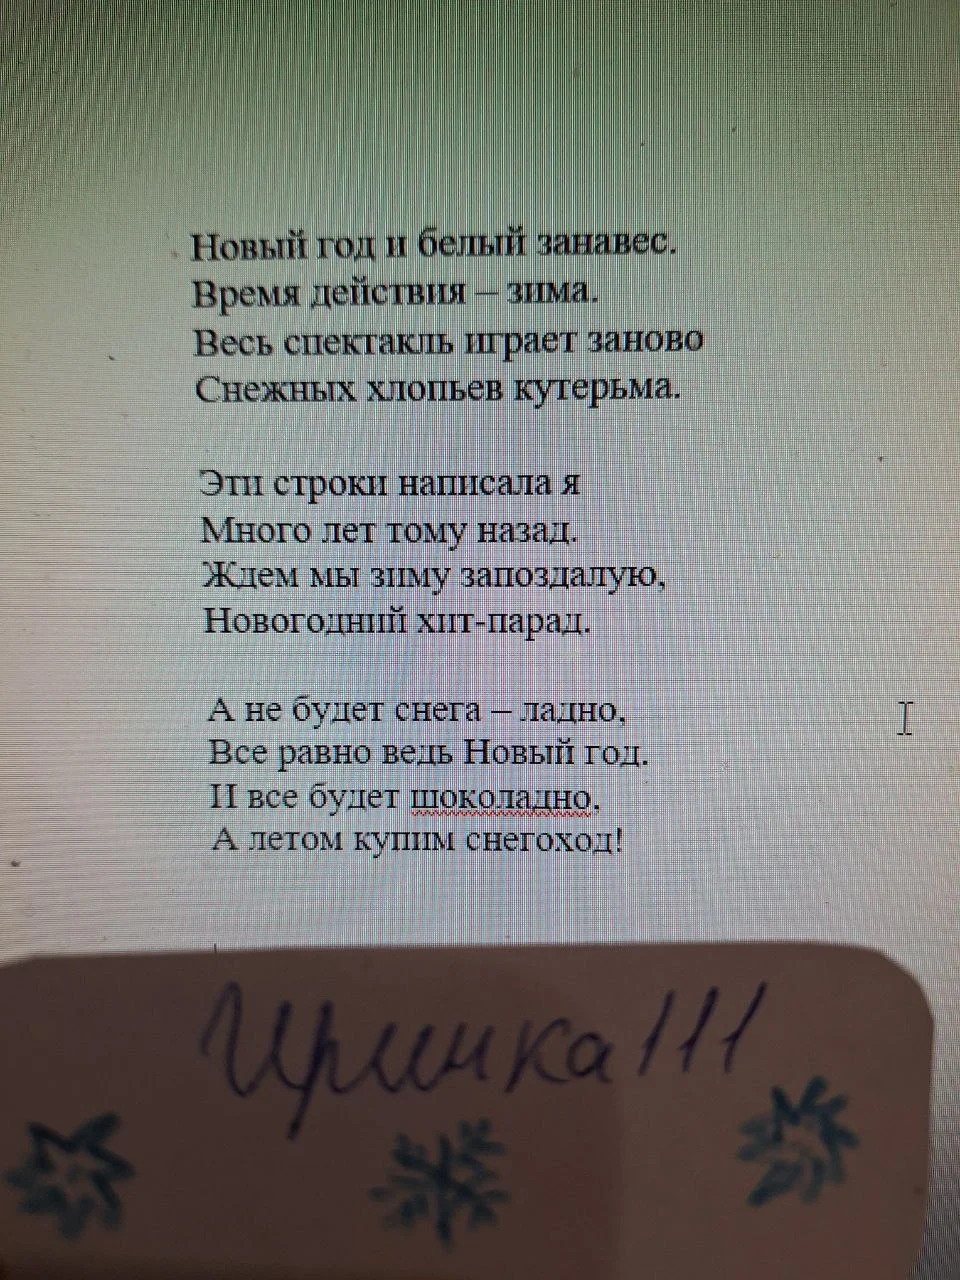 Новый год и белый занавес.
Время действия – зима.
Весь спектакль играет заново
Снежных хлопьев кутерьма.
Эти строки написала я
Много лет тому назад.
Ждем мы зиму запоздалую,
Новогодний хит-парад.
А не будет снега – ладно,
Все равно ведь Новый год.
И все будет шоколадно.
А летом купим снегоход!
Иринка111